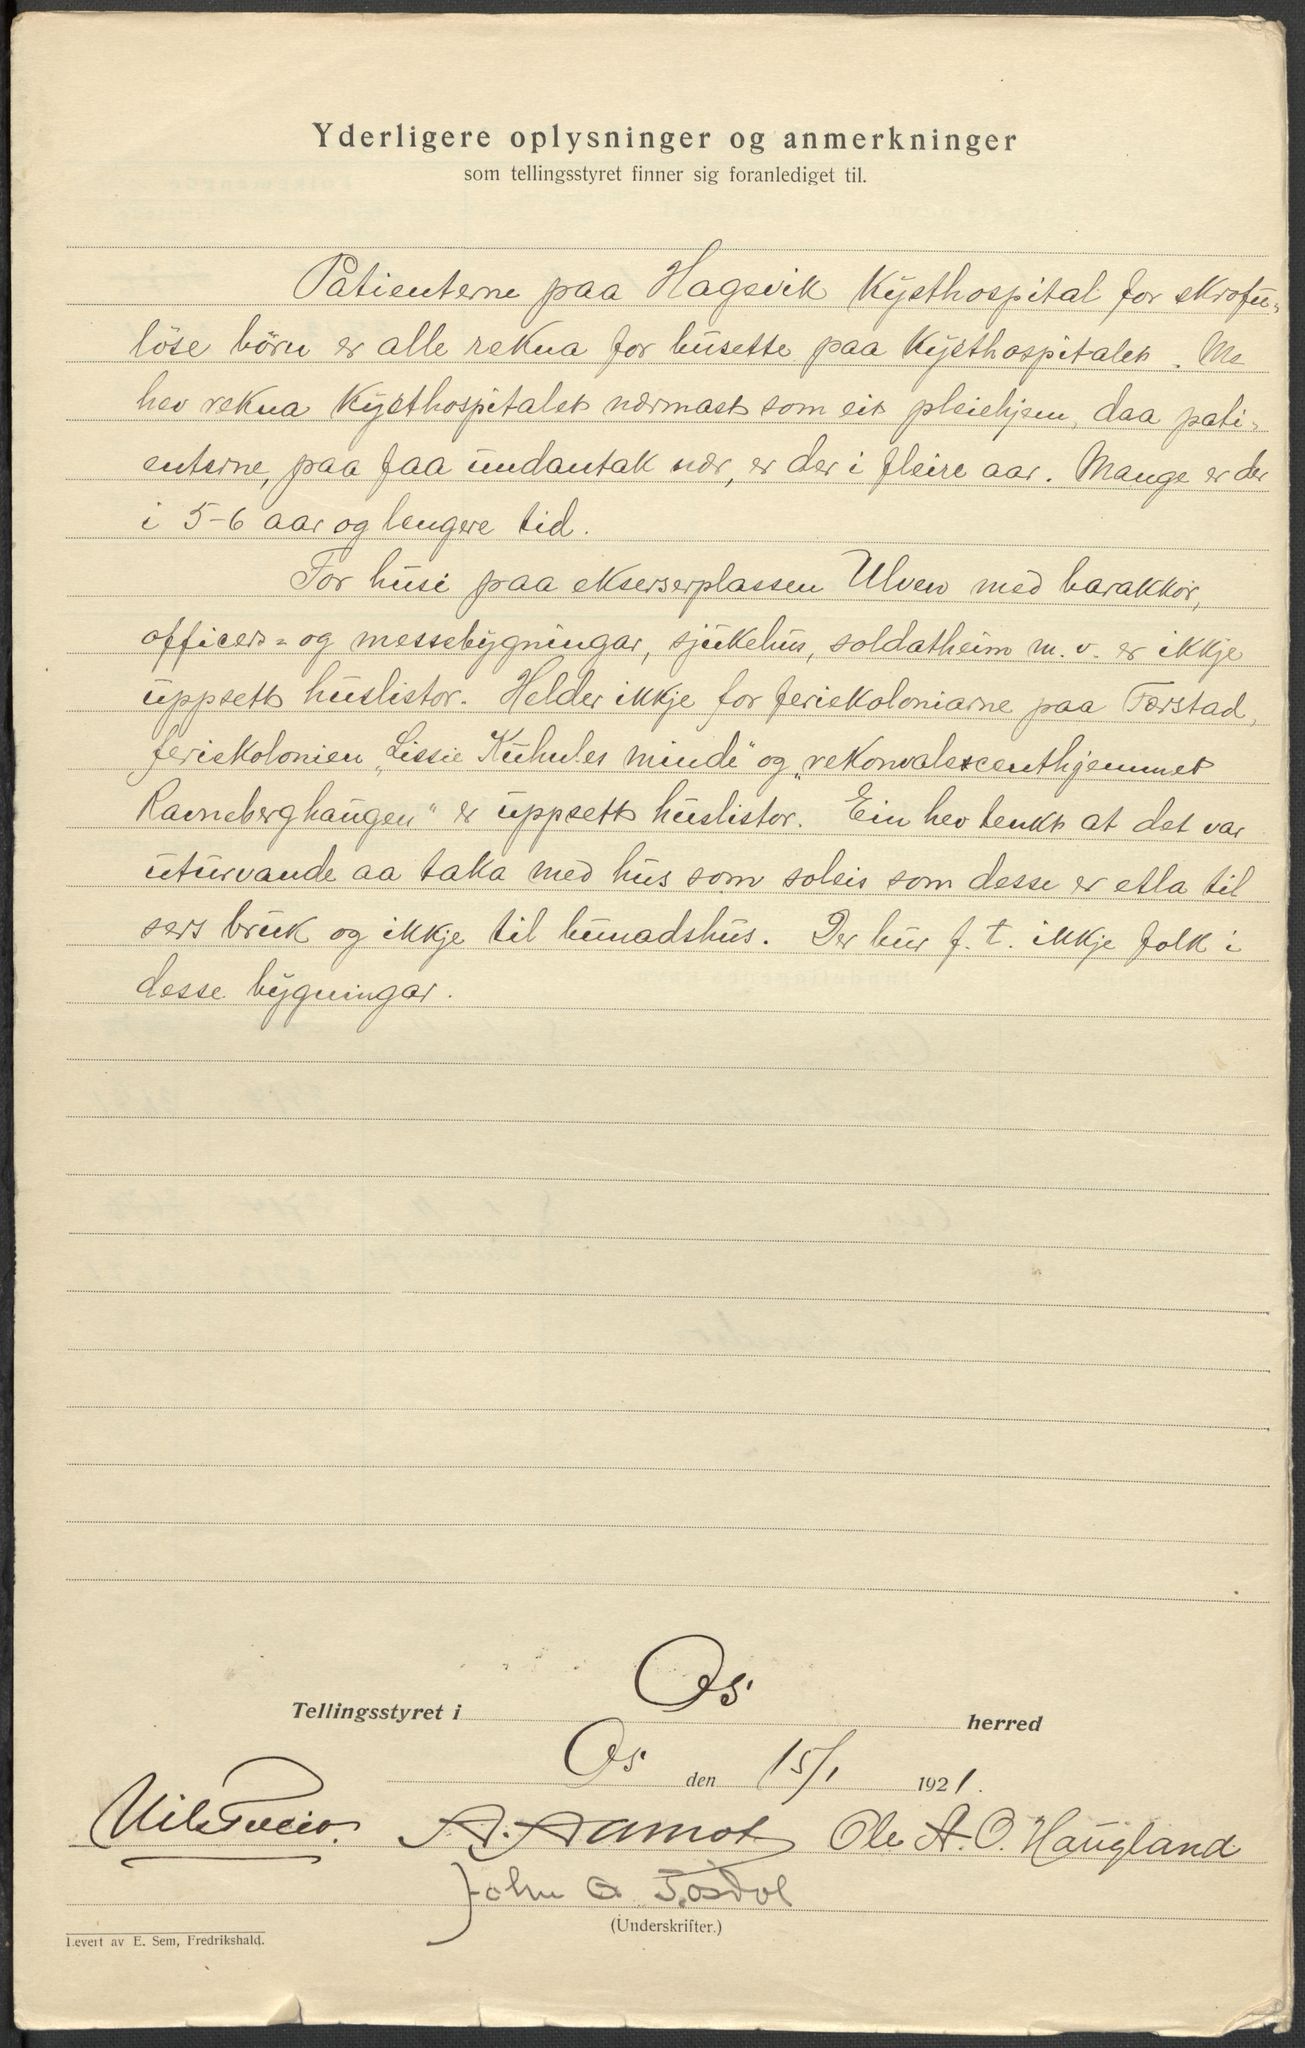 Yderligere oplysninger og anmerkninger
som tellingsstyret finner sig foranlediget til.
Patienterne paa Hagevik Kysthospital for skrofu-
löse börn er alle rekna for busette paa Kysthospitalet. Me
hev rekna Kysthospitalet nærmast som eit pleiehjem, daa pati-
enterne, paa faa undantak nær, er der i fleire aar. Mange er der
i 5-6 aar og lengere tid.
For husi paa ekserserplassen Ulven med barakkor,
officers- og messebygningar, sjukehus, soldatheim m.v. er ikkje
uppsett huslistor. Helder ikkje for feriekoloniarne paa Tørstad,
feriekolonien „Lissie Kuhnles minde" og „rekonvalescenthjemmet
Ravneberghaugen" er uppsett huslistor. Ein hev tenkt at det var
uturvande aa taka med hus som soleis som desse er etla til
sers bruk og ikkje til bunadshus. Der bur f.t. ikkje folk i
desse bygningar.
Tellingsstyret i Os herred
Os den 15/1 1921.
Nils A. Aamot Ole A. O. Haugland
John
(Underskrifter.)
Levert av E. Sem, Fredrikshald.